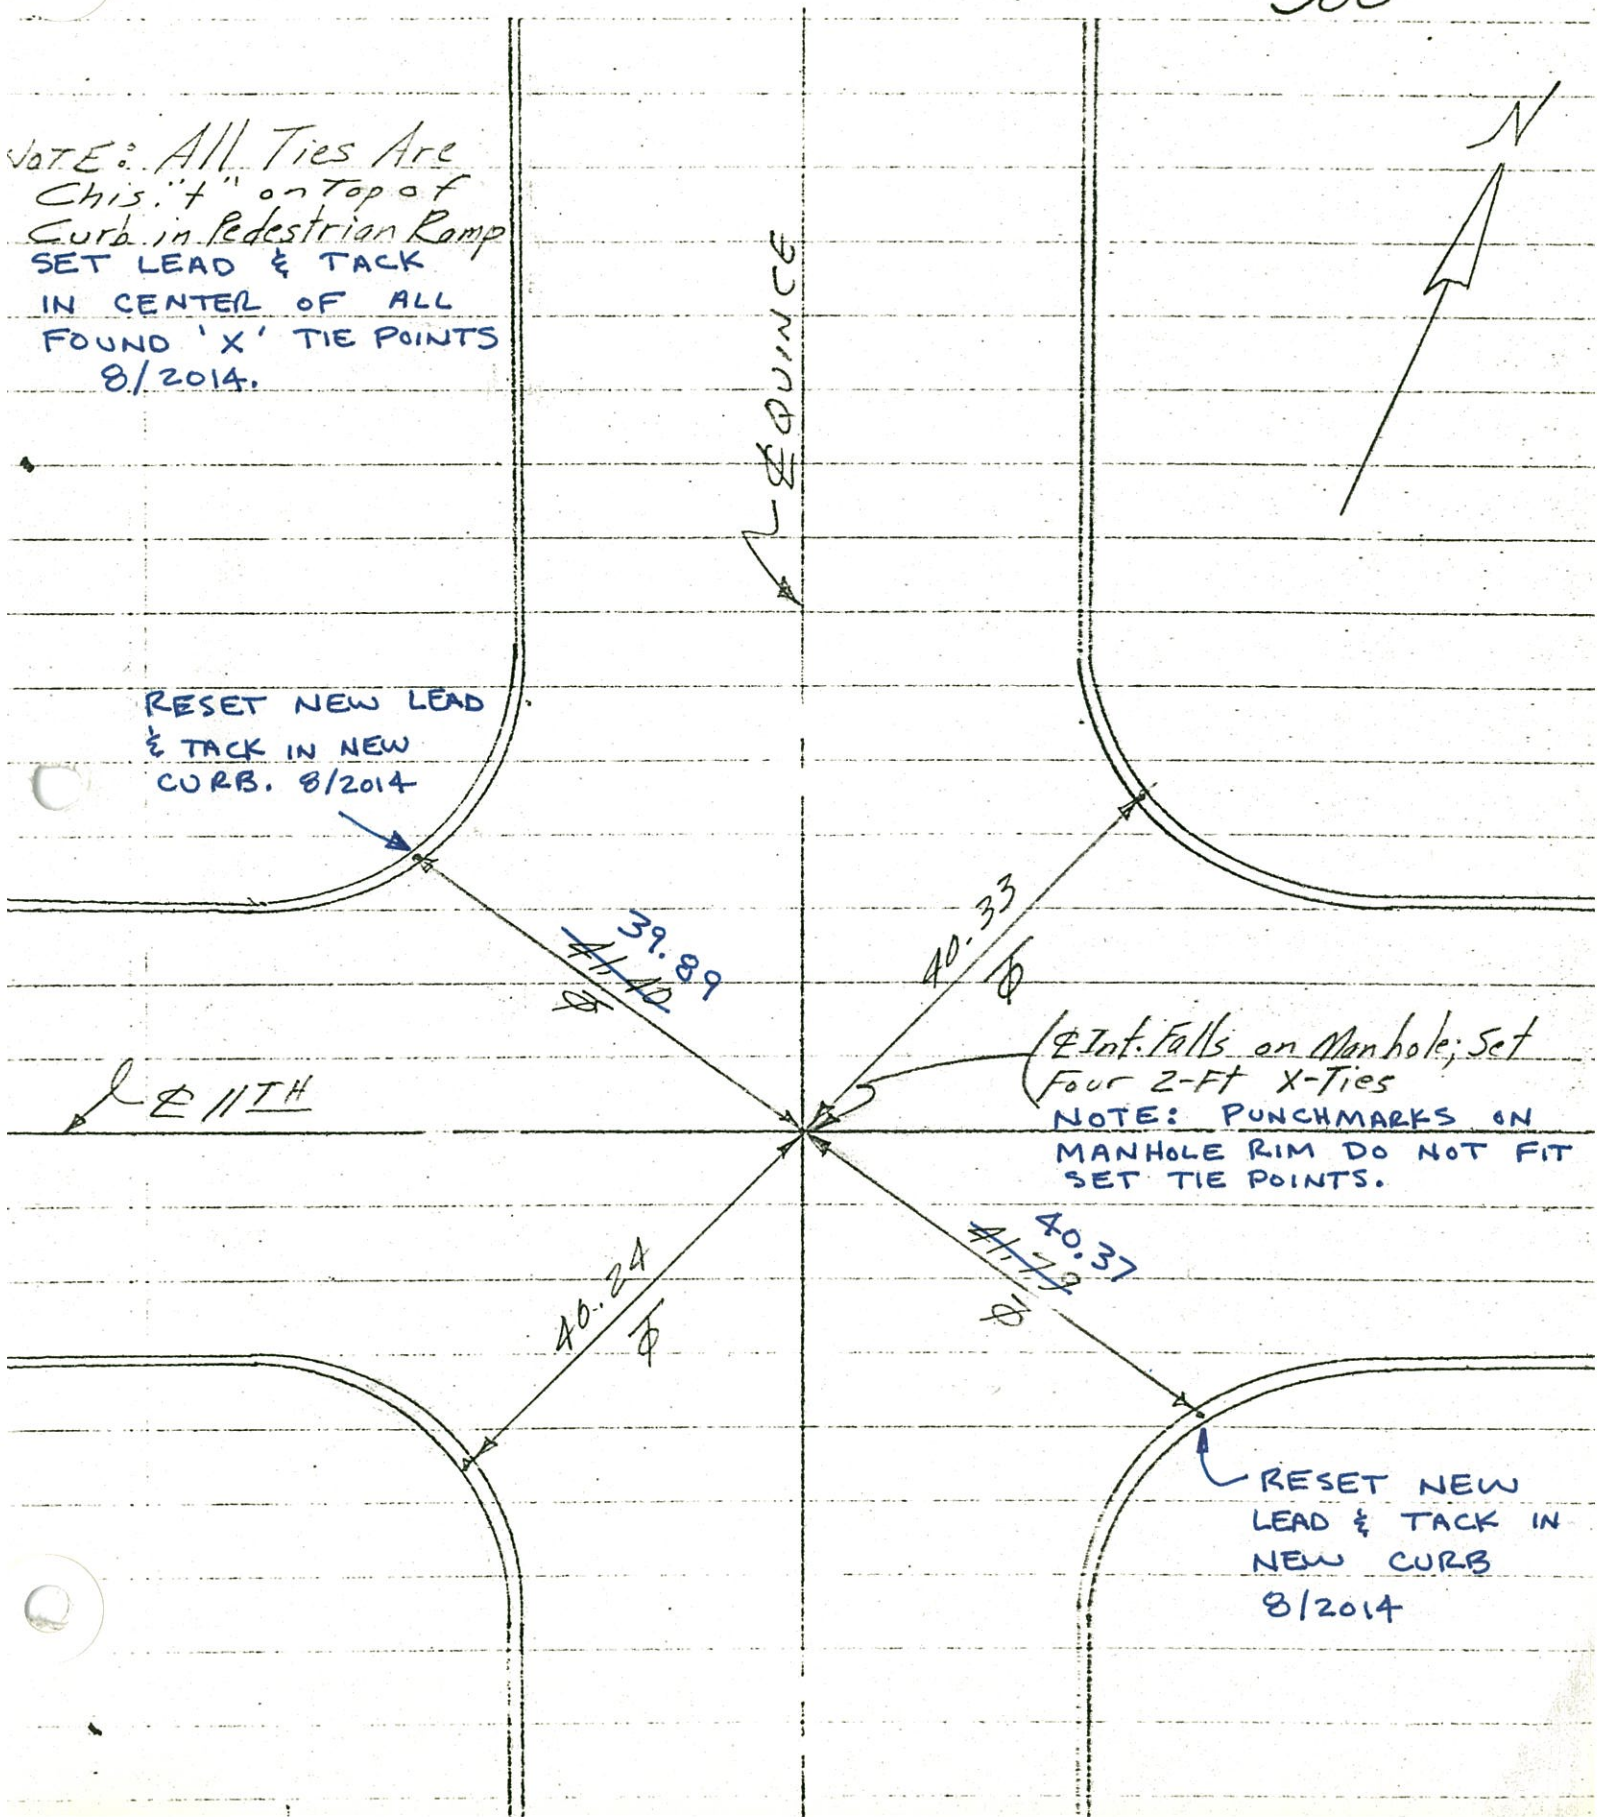 N
NOTE: All Ties Are
Chis. "+" on Top of
Curb in Pedestrian Ramp
SET LEAD & TACK
IN CENTER OF ALL
FOUND 'X' TIE POINTS
8/2014.
℄ QUINCE
RESET NEW LEAD
& TACK IN NEW
CURB. 8/2014
39.89
41.10
40.33
℄ Int. Falls on Manhole; Set
Four 2-Ft X-Ties
NOTE: PUNCHMARKS ON
MANHOLE RIM DO NOT FIT
SET TIE POINTS.
℄ 11TH
40.24
40.37
41.79
RESET NEW
LEAD & TACK IN
NEW CURB
8/2014